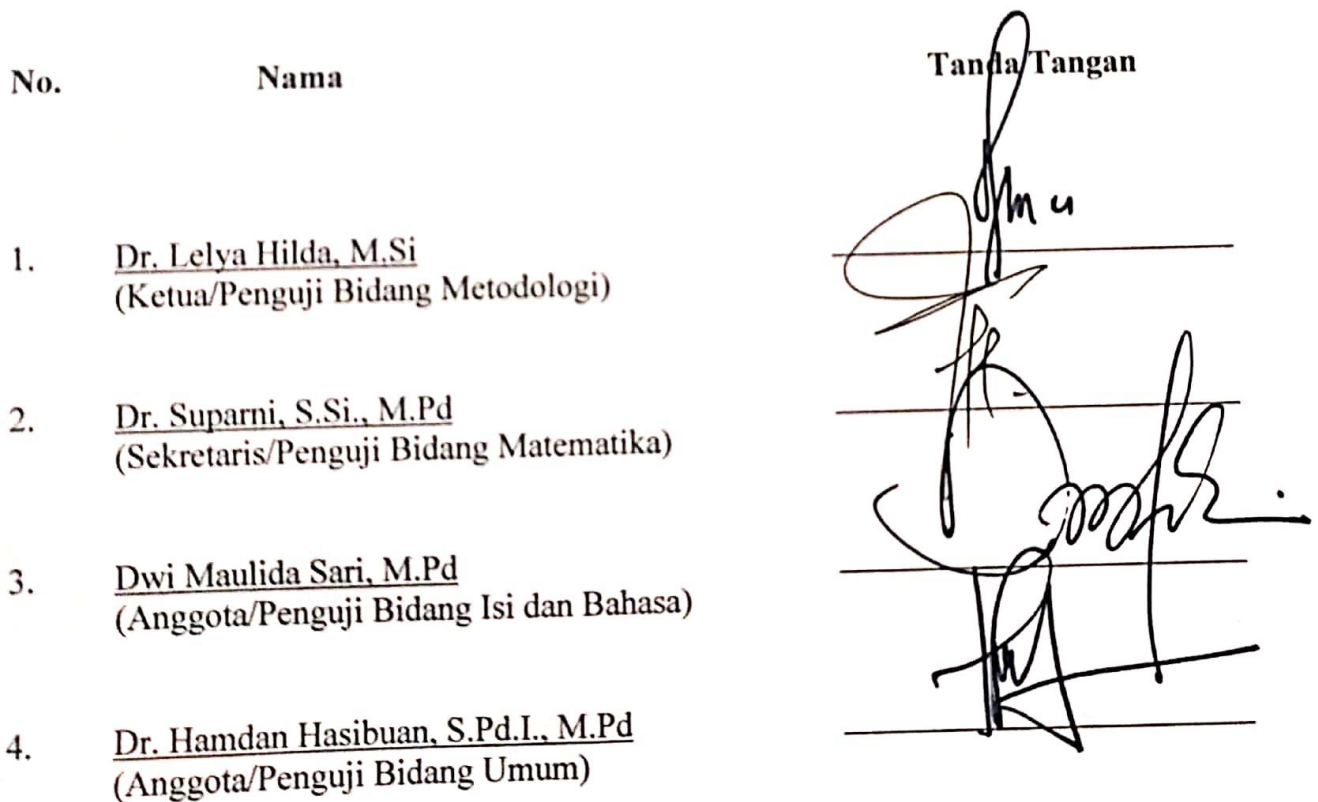 No. Nama Tanda Tangan
1. Dr. Lelya Hilda, M.Si
(Ketua/Penguji Bidang Metodologi)
2. Dr. Suparni, S.Si., M.Pd
(Sekretaris/Penguji Bidang Matematika)
3. Dwi Maulida Sari, M.Pd
(Anggota/Penguji Bidang Isi dan Bahasa)
4. Dr. Hamdan Hasibuan, S.Pd.I., M.Pd
(Anggota/Penguji Bidang Umum)